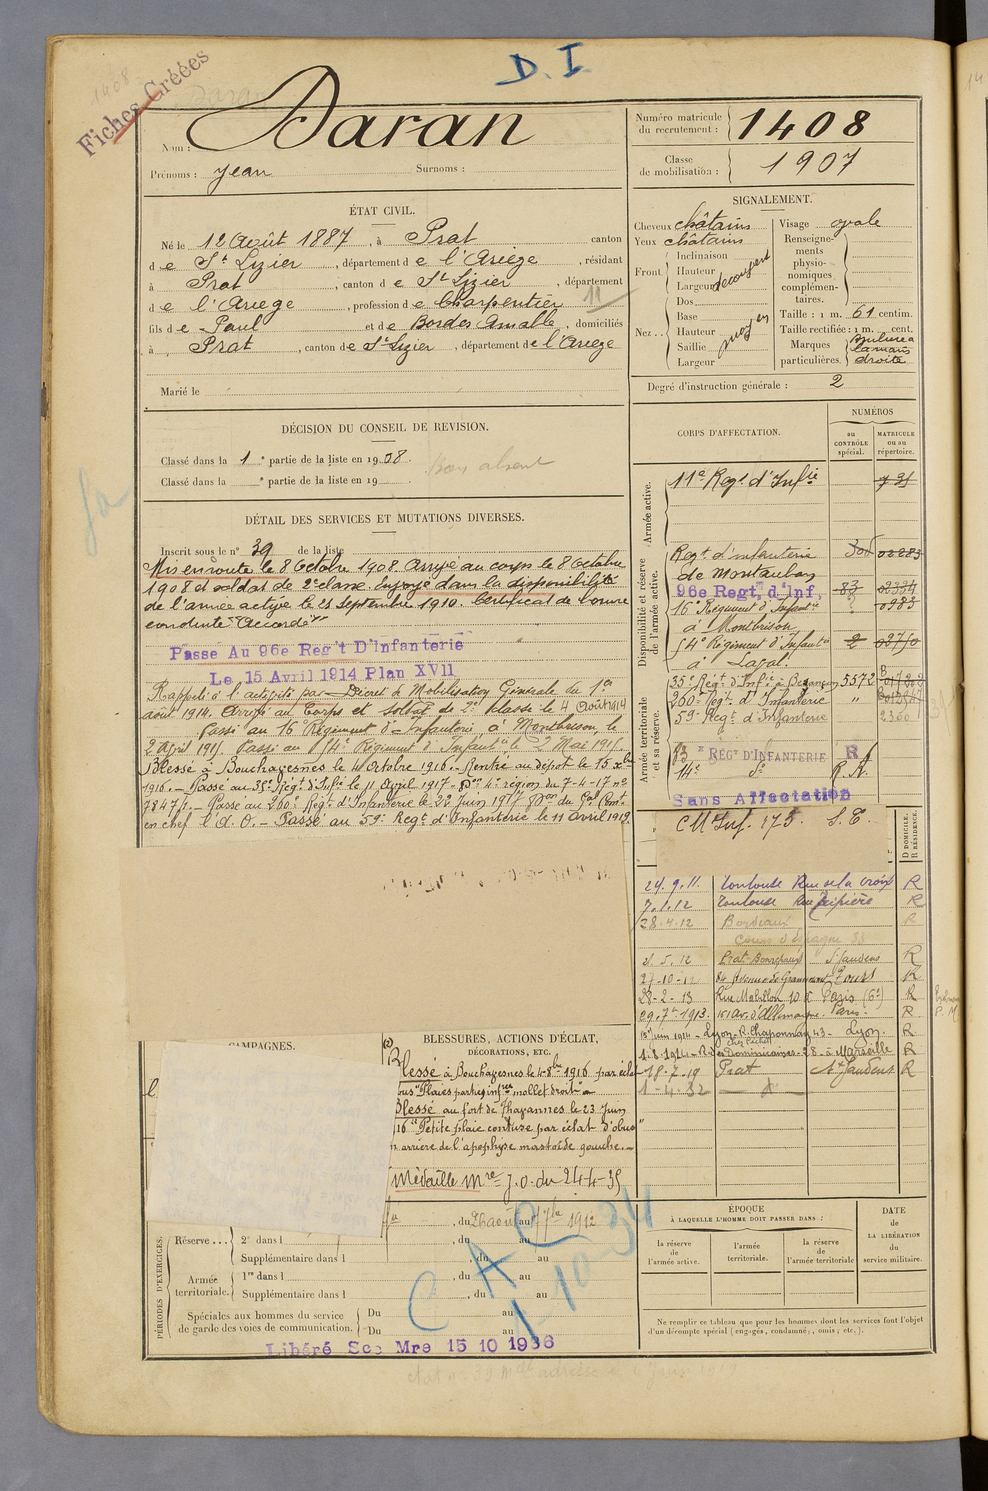 D. I.
Fiches Créées
1408
Nom : Daran
Prénoms : Jean Surnoms :
Numéro matricule du recrutement : 1408
Classe de mobilisation : 1907
ÉTAT CIVIL.
Né le 12 Août 1887, à Prat canton
de St Lizier, département de l'Ariège, résidant
à Prat, canton de St Lizier, département
de l'Ariège, profession de Charpentier 11
fils de Paul et de Bordes Amable, domiciliés
à Prat, canton de St Lizier, département de l'Ariège
Marié le
SIGNALEMENT.
Cheveux châtains
Yeux châtains
Front
Inclinaison
Hauteur
Largeur
découvert
Nez...
Dos
Base
Hauteur
Saillie
Largeur
moyen
Visage ovale
Renseignements physionomiques complémentaires.
Taille : 1 m. 61 centim.
Taille rectifiée : 1 m. cent.
Marques particulières. Brûlure à la main droite
Degré d'instruction générale : 2
DÉCISION DU CONSEIL DE REVISION.
Classé dans la 1e partie de la liste en 1908. Bon absent
Classé dans la e partie de la liste en 19 .
DÉTAIL DES SERVICES ET MUTATIONS DIVERSES.
Inscrit sous le n° 39 de la liste
Mis en route le 8 Octobre 1908 Arrivé au corps le 8 Octobre
1908 et soldat de 2e classe. Envoyé dans la disponibilité
de l'armée active le 25 Septembre 1910. Certificat de bonne
conduite "Accordé"
Passe Au 96e Reg't D'Infanterie
Le 15 Avril 1914 Plan XVII
Rappelé à l'activité par Décret de Mobilisation Générale du 1er
août 1914. Arrivé au Corps et soldat de 2e classe le 4 Août 1914
Passé au 16e Régiment d'Infanterie, à Montbrison, le
2 Avril 1915. Passé au 114e Régiment d'Infantie le 2 Mai 1915
Blessé à Bouchavesnes le 4 Octobre 1916. Rentré au dépôt le 15 xbre
1916. - Passé au 35e Régt d'Infie le 11 Avril 1917 - Don 4e région du 7-4-17 n°
7847/1. - Passé au 260e Regt d'Infanterie le 22 Juin 1917 Don du Gal Comt
en chef l'A. O. - Passé au 59e Regt d'Infanterie le 11 Avril 1919
CORPS D'AFFECTATION.
NUMÉROS
au CONTRÔLE spécial.
MATRICULE ou au répertoire.
Armée active.
11e Regt d'Infie 731
Disponibilité et réserve de l'armée active.
Regt d'infanterie de Montauban
96e Regt, d'Inf, 83 02334
16e Régiment d'Infantie à Montbrison ? 0983
à Laval. 2 02750
35e Régt d'Infie à Besançon 5572
260e Regt d'Infanterie "
59e Regt d'Infanterie 2360
Armée territoriale et sa réserve.
E RÉGT D'INFANTERIE R
14e de R. A.
Sans Affectation
CM Inf. 175. S. E.
D DOMICILE. R RÉSIDENCE.
24.9.11. Toulouse Rue de la Croix R
7.1.12 Toulouse R
28-4-12 Bordeaux R
Cours d'Espagne 33
5.12 Prat-Bonrepaux St Gaudens R
27-10-12 84 Avenue de Grammont Tours R
28-2-13 Rue Mabillon 10 à Paris (6e) R
29.7t 1913. 151 Av. d'Allemagne. Paris. R
juin 1914 - Lyon - R. Chaponnay 43 - Lyon. R
1.8.1914 - R. des Dominicaines - 28 - à Marseille R
18-7-19 Prat St Gaudens R
1-4-32
CAMPAGNES.
BLESSURES, ACTIONS D'ÉCLAT,
DÉCORATIONS, ETC.
Blessé à Bouchavesnes le 4-8bre 1916 par éclat
obus "Plaies parties infres mollet droit"
Blessé au fort de Thavannes le 23 Juin
1916 "Petite plaie contuse par éclat d'obus"
en arrière de l'apophyse mastoïde gauche.
Médaille Mre J.O. du 24-4-35
PÉRIODES D'EXERCICES.
, du 26 août au 7 7bre 1912
Réserve... 2e dans l , du au
Supplémentaire dans l , du au
Armée territoriale. 1re dans l , du au
Supplémentaire dans l , du au
Spéciales aux hommes du service de garde des voies de communication. Du au
Du au
C A C
1-10-34
Libéré Sce Mre 15 10 1936
ÉPOQUE
À LAQUELLE L'HOMME DOIT PASSER DANS :
la réserve de l'armée active.
l'armée territoriale.
la réserve de l'armée territoriale
DATE de LA LIBÉRATION du service militaire.
Ne remplir ce tableau que pour les hommes dont les services font l'objet
d'un décompte spécial (engagés, condamnés, omis, etc.).